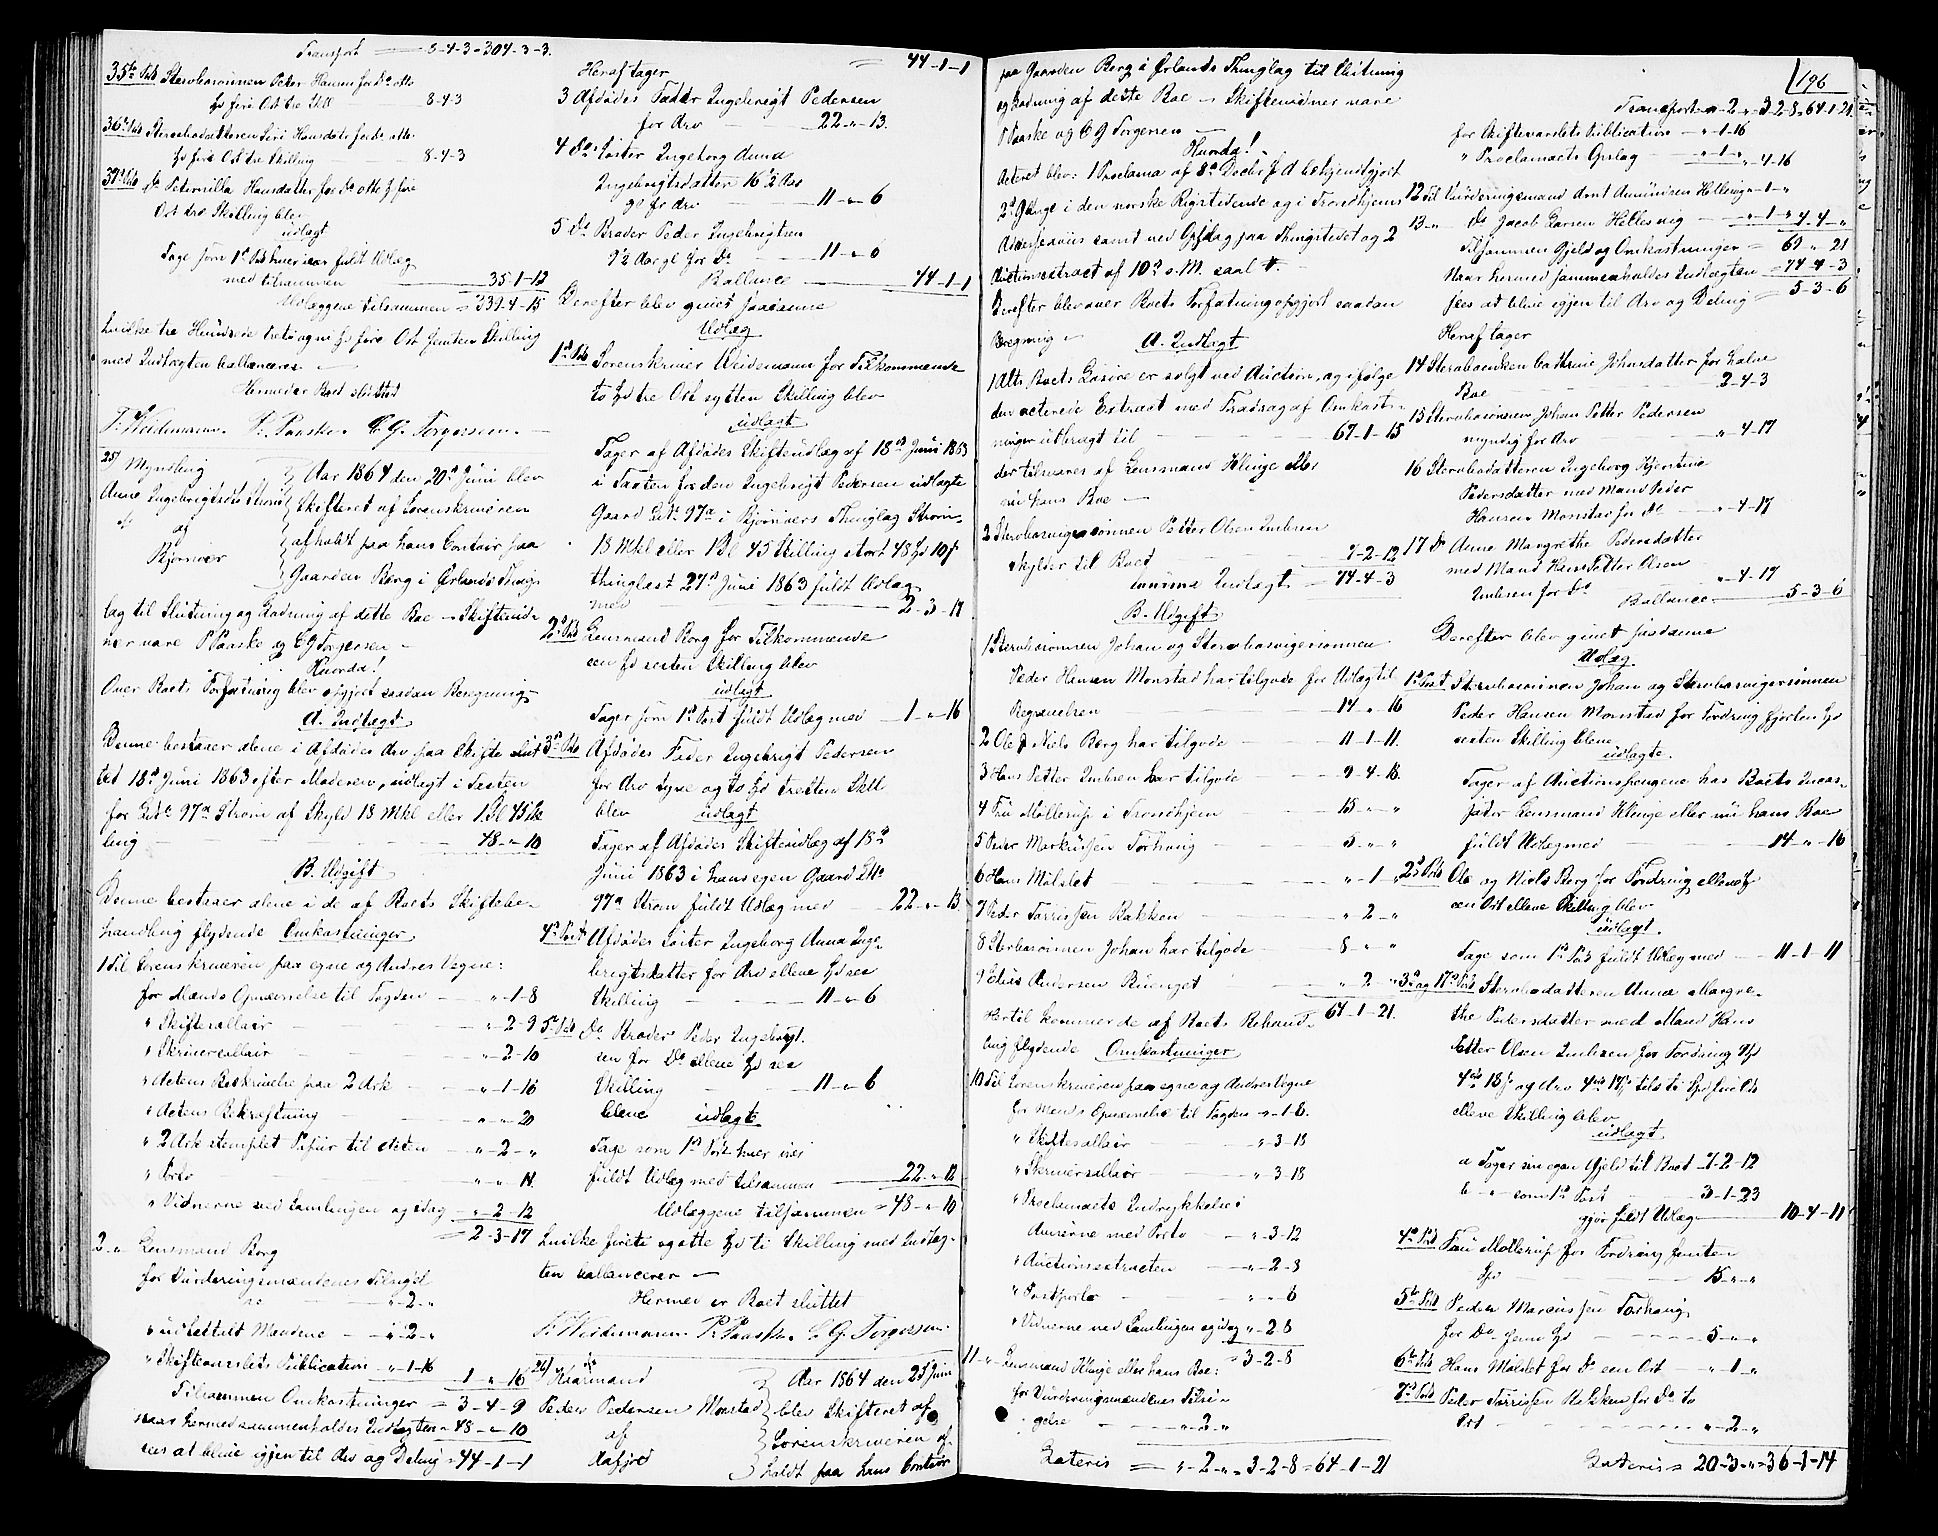 Transport — 8-4-3 = 304-3-3.
35te Post Stervbosønnen Peter Hansen for Do otte
Spd fire Ort tre Skill — 8-4-3
36te Post Stervbodatteren Siri Hansdatr for do otte
Spd fire Ort tre Skilling — 8-4-3
37te Post do Peternilla Hansdatter for Do otte Spd fire
Ort tre Skilling blev
udlagt
Tage som 1ste Post hver især fuldt Udlæg
med tilsammen — 35-1-12
Udlæggene tilsammen = 339-4-15
hvilke tre Hundrede treti og ni Spd fire Ort femten Skilling
med Indtægten ballancerer —
Hermed er Boet sluttet
F. Weidemann. P. Paaske. C. G. Torgersen.
25/ Myndling
Anne Ingebrigtsdtr Strøm
af
Bjørnør
Aar 1864 den 20de Juni blev
Skifteret af Sorenskriveren
afholdt paa hans Contoir paa
Gaarden Borg i Ørlands Thing-
lag til Slutning og Endning af dette Boe – Skiftevid-
ner vare P Paaske og C G Torgersen –
Hvorda!
Over Boets Forfatning blev opgjort saadan Beregning
A. Indtægt
Denne bestaaer alene i Afdødes Arv paa Skifte slut-
tet 18de Juni 1863 efter Moderen, udlagt i Testen
for Litr 97a Strøm af Skyld 18 Mkl eller 1 Dl 45 Sk-
ling — 48 - „ 10
B. Udgift
Denne bestaaer alene i de af Boets Skiftebe-
handling flydende Omkostninger
1 Til Sorenskriveren paa egne og Andres Vegne:
for Mænds Opnævnelse til Taxten — „ -1-8
„ Skiftesallair — „ -2-9
„ Skriversallair — „ -2-10
„ Actens Beskrivelse paa 2 Ark — „ -1-16
„ Actens Bekræftning — „ - „ 20
„ 2 Ark stemplet Papir til Acten — „ -2- „
„ Porto — „ - „ 14
„ Vidnerne ved Samlingen og idag — „ -2-12
= 2-3-17
2 „ Lensmand Borg
for Vurderingsmændenes Tilsigel
se — „ -2- „
„ udbetalt Mændene — „ -2- „
„ Skiftevarslets Publication — „ -1-16
1 „ 16
Tilsammen Omkostninger = 3-4-9
naar hermed sammenholdes Indtægten = 48 - „ 10
sees at blive igjen til Arv og Deling = 44-1-1
Heraf tager = 44-1-1
3 Afdødes Fader Ingebrigt Pedersen
for Arv — 22 - „ 13.
4 Do Søster Ingeborg Anna
Ingebrigtsdatter 16½ Aar
gl for Arv — 11 - „ 6
5 Do Broder Peder Ingebrigtsen
9½ Aar gl for Do — 11 - „ 6
Ballance — 44-1-1
Derefter blev givet saadanne
Udlæg
1ste Post Sorenskriver Weidemann for Tilkommende
to Spd tre Ort sytten Skilling blev
udlagt
Tager af Afdødes Skifteudlæg af 18de Juni 1863
i Taxten for den Ingebrigt Pedersen udlagte
Gaard Litr 97a i Bjørnørs Thinglag Strøm
18 Mkl eller 1 Dl 45 Skilling stort 48 Spd 10 s
thinglæst 27de Juni 1863 fuldt Udlæg
med — 2-3-17
2den Post Lensmand Borg for Tilkommende
een Spd sexten Skilling blev
udlagt
Tager som 1ste Post fuldt Udlæg med — 1 „ 16
3die Post Afdødes Fader Ingebrigt Pedersen
for Arv tyve og to Spd tretten Skill
blev udlagt
Tager af Afdødes Skifteudlæg af 18de
Juni 1863 i hans egen Gaard Litr
97a Strøm fuldt Udlæg med — 22 - „ 13
4de Post Afdødes Søster Ingeborg Anna Inge-
brigtsdatter for Arv elleve Spd sex
Skilling — 11 - „ 6
5te Post Do Broder Peder Ingebrigt-
sen for Do elleve Spd sex
Skilling — 11 - „ 6
bleve udlagte
Tage som 1ste Post hver især
fuldt Udlæg med tilsammen — 22 - „ 12
Udlæggene tilsammen = 48 - „ 10
hvilke førti og otte Spd ti Skilling med Indtæg-
ten ballancerer —
Hermed er Boet sluttet
F. Weidemann. P. Paaske. C. G. Torgersen.
26/ Kaarmand
Peder Pedersen Monstad
af
Aafjord
Aar 1864 den 25de Juni
blev Skifteret af
Sorenskriveren af-
holdt paa hans Contoir
196
paa Gaarden Borg i Ørlands Thinglag til Slutning
og Endning af dette Boe – Skiftevidner vare
P Paaske og C G Torgersen —
Hvorda!
Acteret blev: 1 Proclama af 8de Decbr f. A bekjendtgjort
2de Gange i den norske Rigstidende og i Trondhjems
Adresseavis samt ved Opslag paa Thingstedet og 2
Auctionsextract af 10de d. M. saal. #. –
Derefter blev over Boets Forfatning opgjort saadan
Beregning – A. Indtægt
1 Alt Boets Løsøre er solgt ved Auction, og ifølge
den acterede Extract med Fradrag af Omkost-
ninger utbragt til — 67-1-15
der tilsvares af Lensmand Klinge eller
nu hans Boe —
2 Stervbosvigersønnen Petter Olsen
skylder til Boet — 7-2-12
Summa Indtægt — 74-4-3
B. Udgift
1 Stervbosønnen Johan og Stervbosvigersønnen
Peder Hansen Monstad har tilgode for Udlæg til
Begravelsen — 14 „ 16
2 Ole & Niels Borg har tilgode — 11-1-11.
3 Hans Petter har tilgode — 9-4-18.
4 Fru Møllerup i Trondhjem — 15 „ „
5 Peder Markussen Forhaug — 5 „ „
6 Hans Målslet — „ 1 „
7 Peder Tarrissen Bakken — „ 2 „
8 Stervbosønnen Johan har tilgode — 8 „ „
9 Andersen — „ 2 „
64-1-21.
Hertil kommer de af Boets Behand-
ling flydende Omkostninger
10 Til Sorenskriveren paa egne og Andres Vegne
for Mænds Opnævnelse til Taxten „ -1-8.
„ Skiftesallair — „ -3-18
„ Skriversallair — „ -3-18
„ Proclamaets Indrykkelse i
Aviserne med Porto — „ -3-12
„ Auctionsextracten — „ -2-8
„ Postporto — „ „ 6
„ Vidnerne ved Samlingen og idag „ -2-8
= 3-2-8
11 „ Lensmand Klinge eller hans Boe:
for Vurderingsmændenes Tilsi-
gelse — „ -2- „
Lateris = „ -2- „ = 3-2-8 = 64-1-21
Transport „ -2 „ 3-2-8 „ 64-1-21
for Skiftevarslets Publication — „ -1-16
„ Proclamaets Opslag — „ -1- „ „ -4-16
12 Til Vurderingsmand Arnt Amundsen Hellesvig „ -1- „
13 „ do Jacob Larsen Hellesvig — „ -1- „ 4-4- „
Tilsammen Gjeld og Omkostninger = 69 „ 21
Naar hermed sammenholdes Indtægten = 74-4-3
sees at blive igjen til Arv og Deling = 5-3-6
Heraf tager
14 Stervboenken Cathrine Johnsdatter for halve
Boe — 2-4-3
15 Stervbosønnen Johan Petter Pedersen
myndig for Arv — „ -4-17
16 Stervbodatteren Ingeborg Kjerstine
Pedersdatter med Mand Peder
Hansen Monstad for Do — „ -4-17
17 do Anne Margrethe Pedersdatter
med Mand Hans Petter Olsen
for Do — „ -4-17
Ballance — 5-3-6
Derefter blev givet saadanne
Udlæg
1ste Post Stervbosønnen Johan og Stervbosvigersønnen
Peder Hansen Monstad for Fordring fjorten Spd
sexten Skilling bleve
udlagte.
Tager af Auctionspengene hos Boets Incas-
sator Lensmand Klinge eller nu hans Boe
fuldt Udlæg med — 14 „ 16
2den Post Ole og Niels Borg for Fordring elleve Spd
een Ort elleve Skilling blev
udlagt.
Tage som 1ste Post fuldt Udlæg med — 11-1-11
3die og 17de Post Stervbodatteren Anna Margre-
the Pedersdatter med Mand Hans
Petter Olsen for Fordring 9 Spd
4 ort 18 s og Arv 4 ort 17 s, tils. ti Spd fire Ort
elleve Skilling blev
udlagt
a Tager sin egen Gjeld til Boet 7-2-12
b „ som 1ste Post — 3-1-23
gjør fuldt Udlæg — 10-4-11
4de Post Fru Møllerup for Fordring femten
Spd — 15 „ „
5te Post Peder Marcussen Forhaug
for Do fem Spd — 5 „ „
6te Post Hans Målslet for Do een Ort — „ -1 „
7de Post Peder Tarrissen Bakken for Do to
Ort — „ -2- „
Lateris = 20-3- „ = 36-1-14